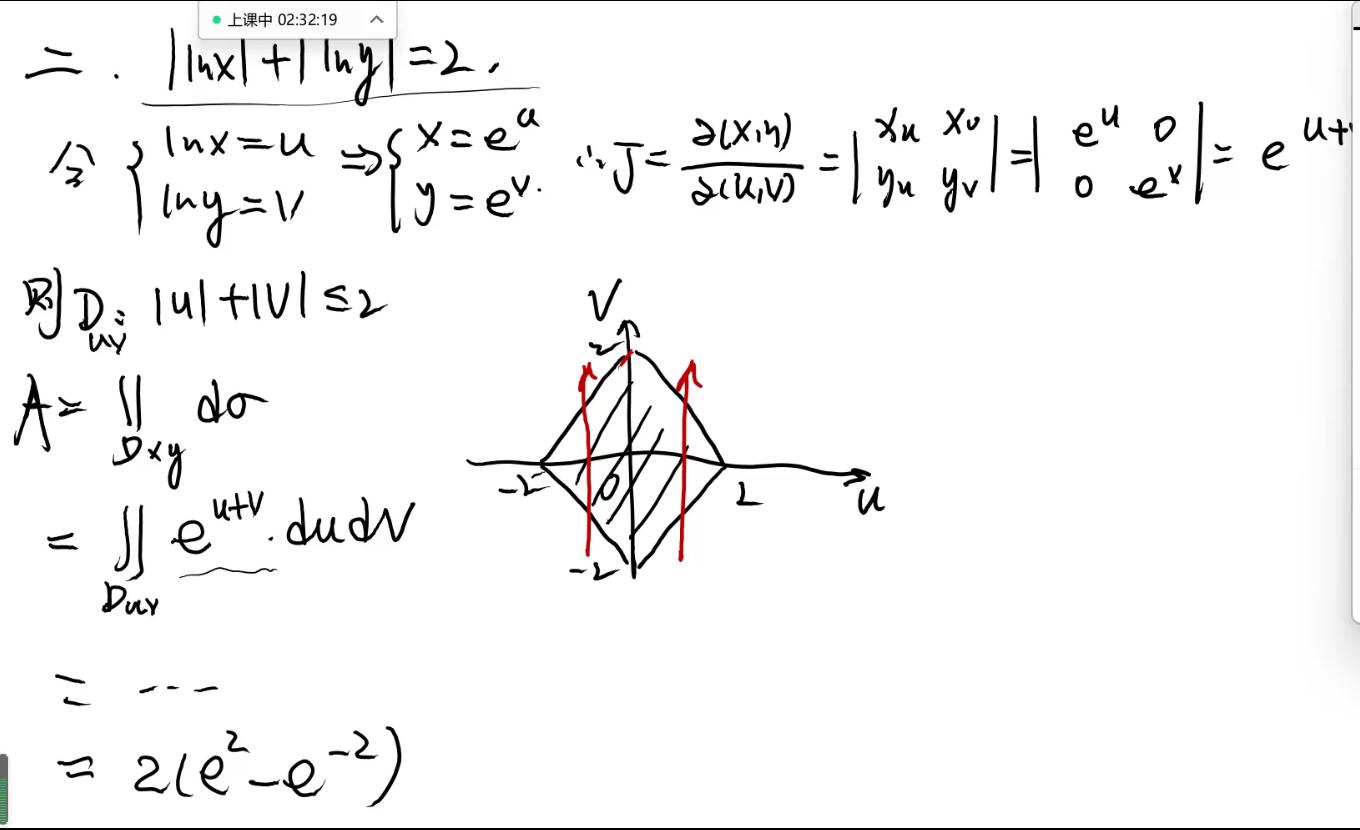 上课中 02:32:19
二. |lnx|+|lny|=2.
令 { lnx=u lny=v ⇒ { x=e^u y=e^v. ∴ J= ∂(x,y)/∂(u,v) = | x_u x_v y_u y_v | = | e^u 0 0 e^v | = e^{u+
则 D_{uv}: |u|+|v|≤2
A= ∬_{Dxy} dσ
= ∬_{Duv} e^{u+v}·dudv
= ---
= 2(e^2-e^{-2})
V
2
-2 0 2 u
-2